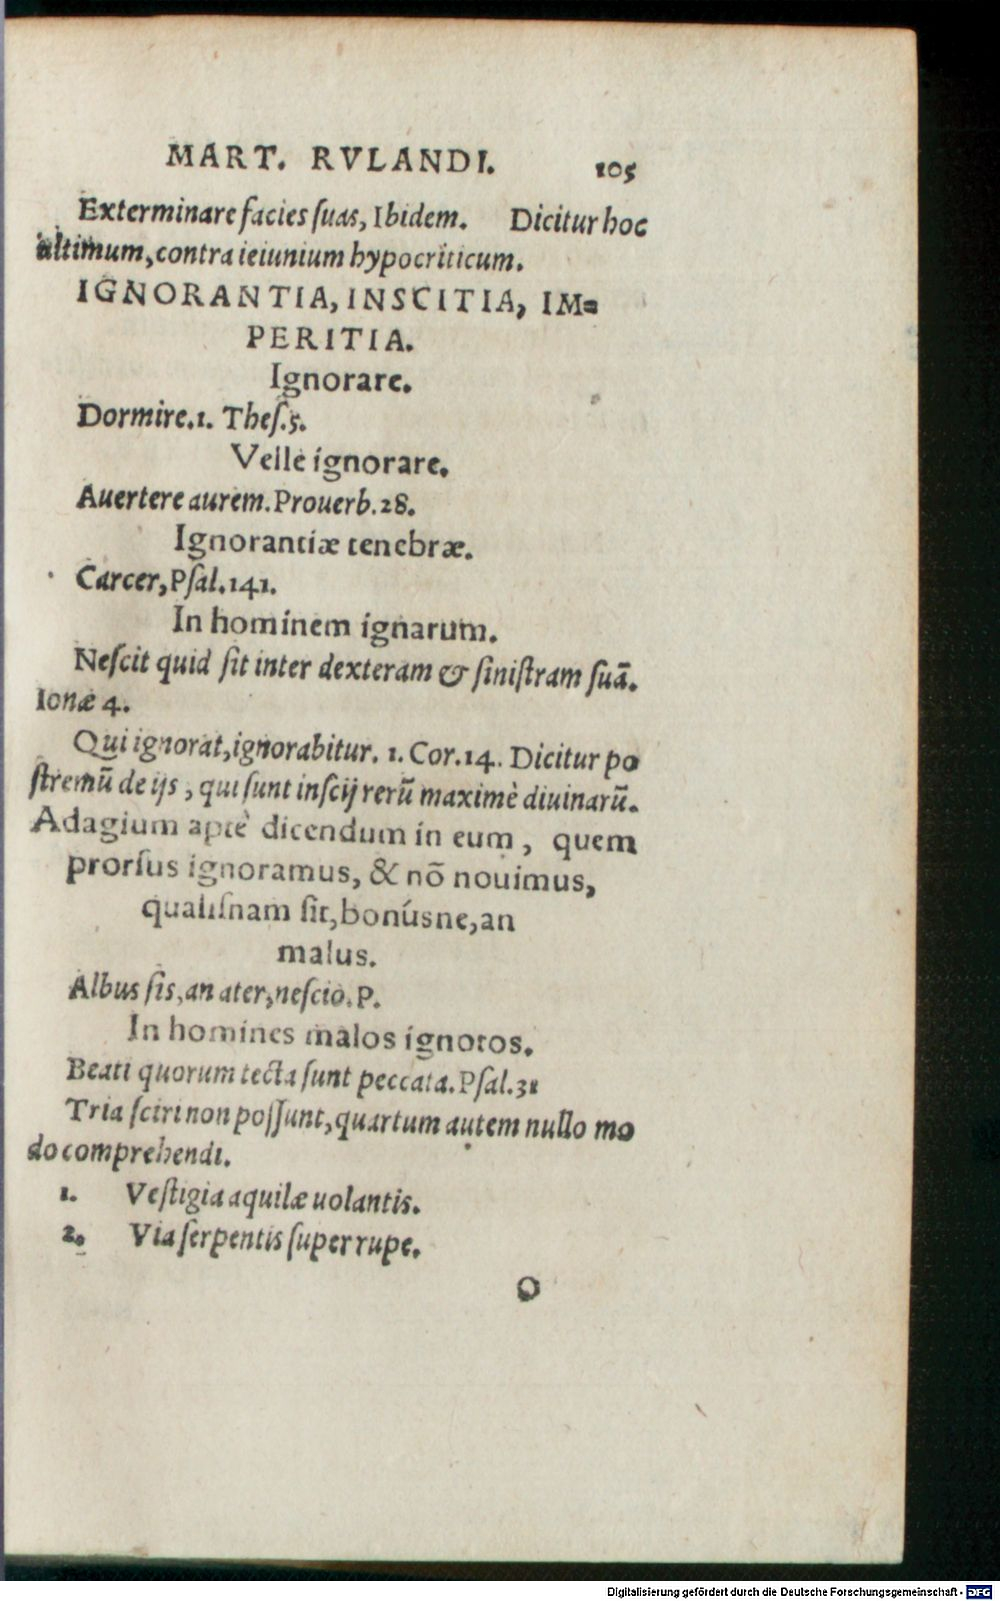 MART. RVLANDI. 105
Exterminare facies ſuas, Ibidem. Dicitur hoc
ultimum, contra ieiunium hypocriticum.
IGNORANTIA, INSCITIA, IM=
PERITIA.
Ignorare.
Dormire. 1. Theſ. 5.
Velle ignorare.
Auertere aurem. Prouerb. 28.
Ignorantiæ tenebræ.
Carcer, Pſal. 141.
In hominem ignarum.
Neſcit quid ſit inter dexteram & ſiniſtram ſuā.
Ionæ 4.
Qui ignorat, ignorabitur. 1. Cor. 14. Dicitur po
ſtremū de ijs, qui ſunt inſcij rerū maximè diuinarū.
Adagium aptè dicendum in eum, quem
prorſus ignoramus, & nō nouimus,
qualiſnam ſit, bonúsne, an
malus.
Albus ſis, an ater, neſcio. P.
In homines malos ignotos.
Beati quorum tecta ſunt peccata. Pſal. 31
Tria ſciri non poſſunt, quartum autem nullo mo
do comprehendi.
1. Veſtigia aquilæ uolantis.
2. Via ſerpentis ſuper rupe.
O
Digitalisierung gefördert durch die Deutsche Forschungsgemeinschaft - DFG